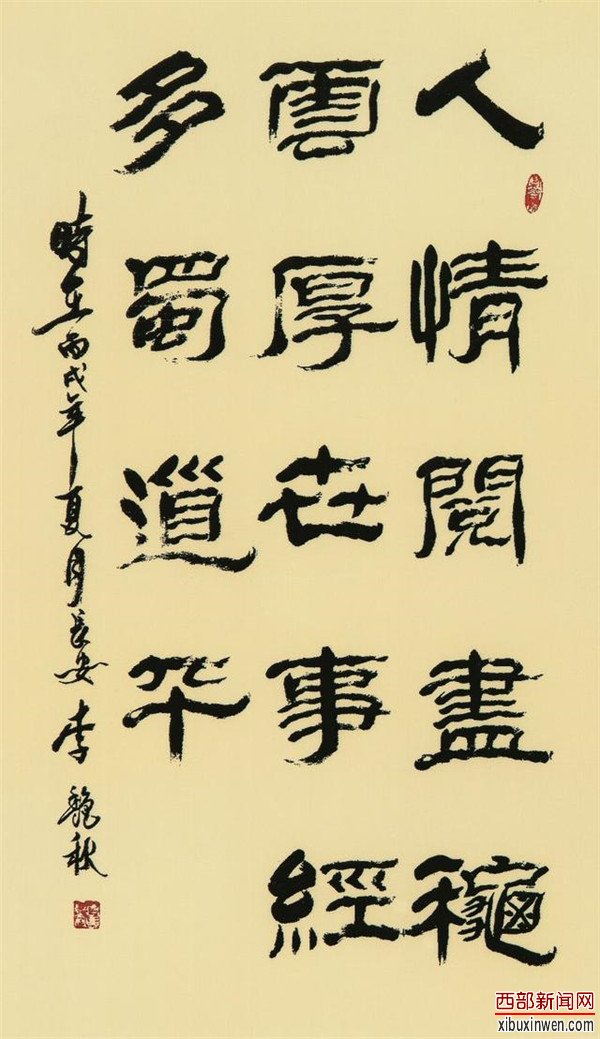 人情閱盡龝
雲厚世事經
多蜀道平
時在丙戌年夏月長安李魏秋
西部新闻网
xibuxinwen.com